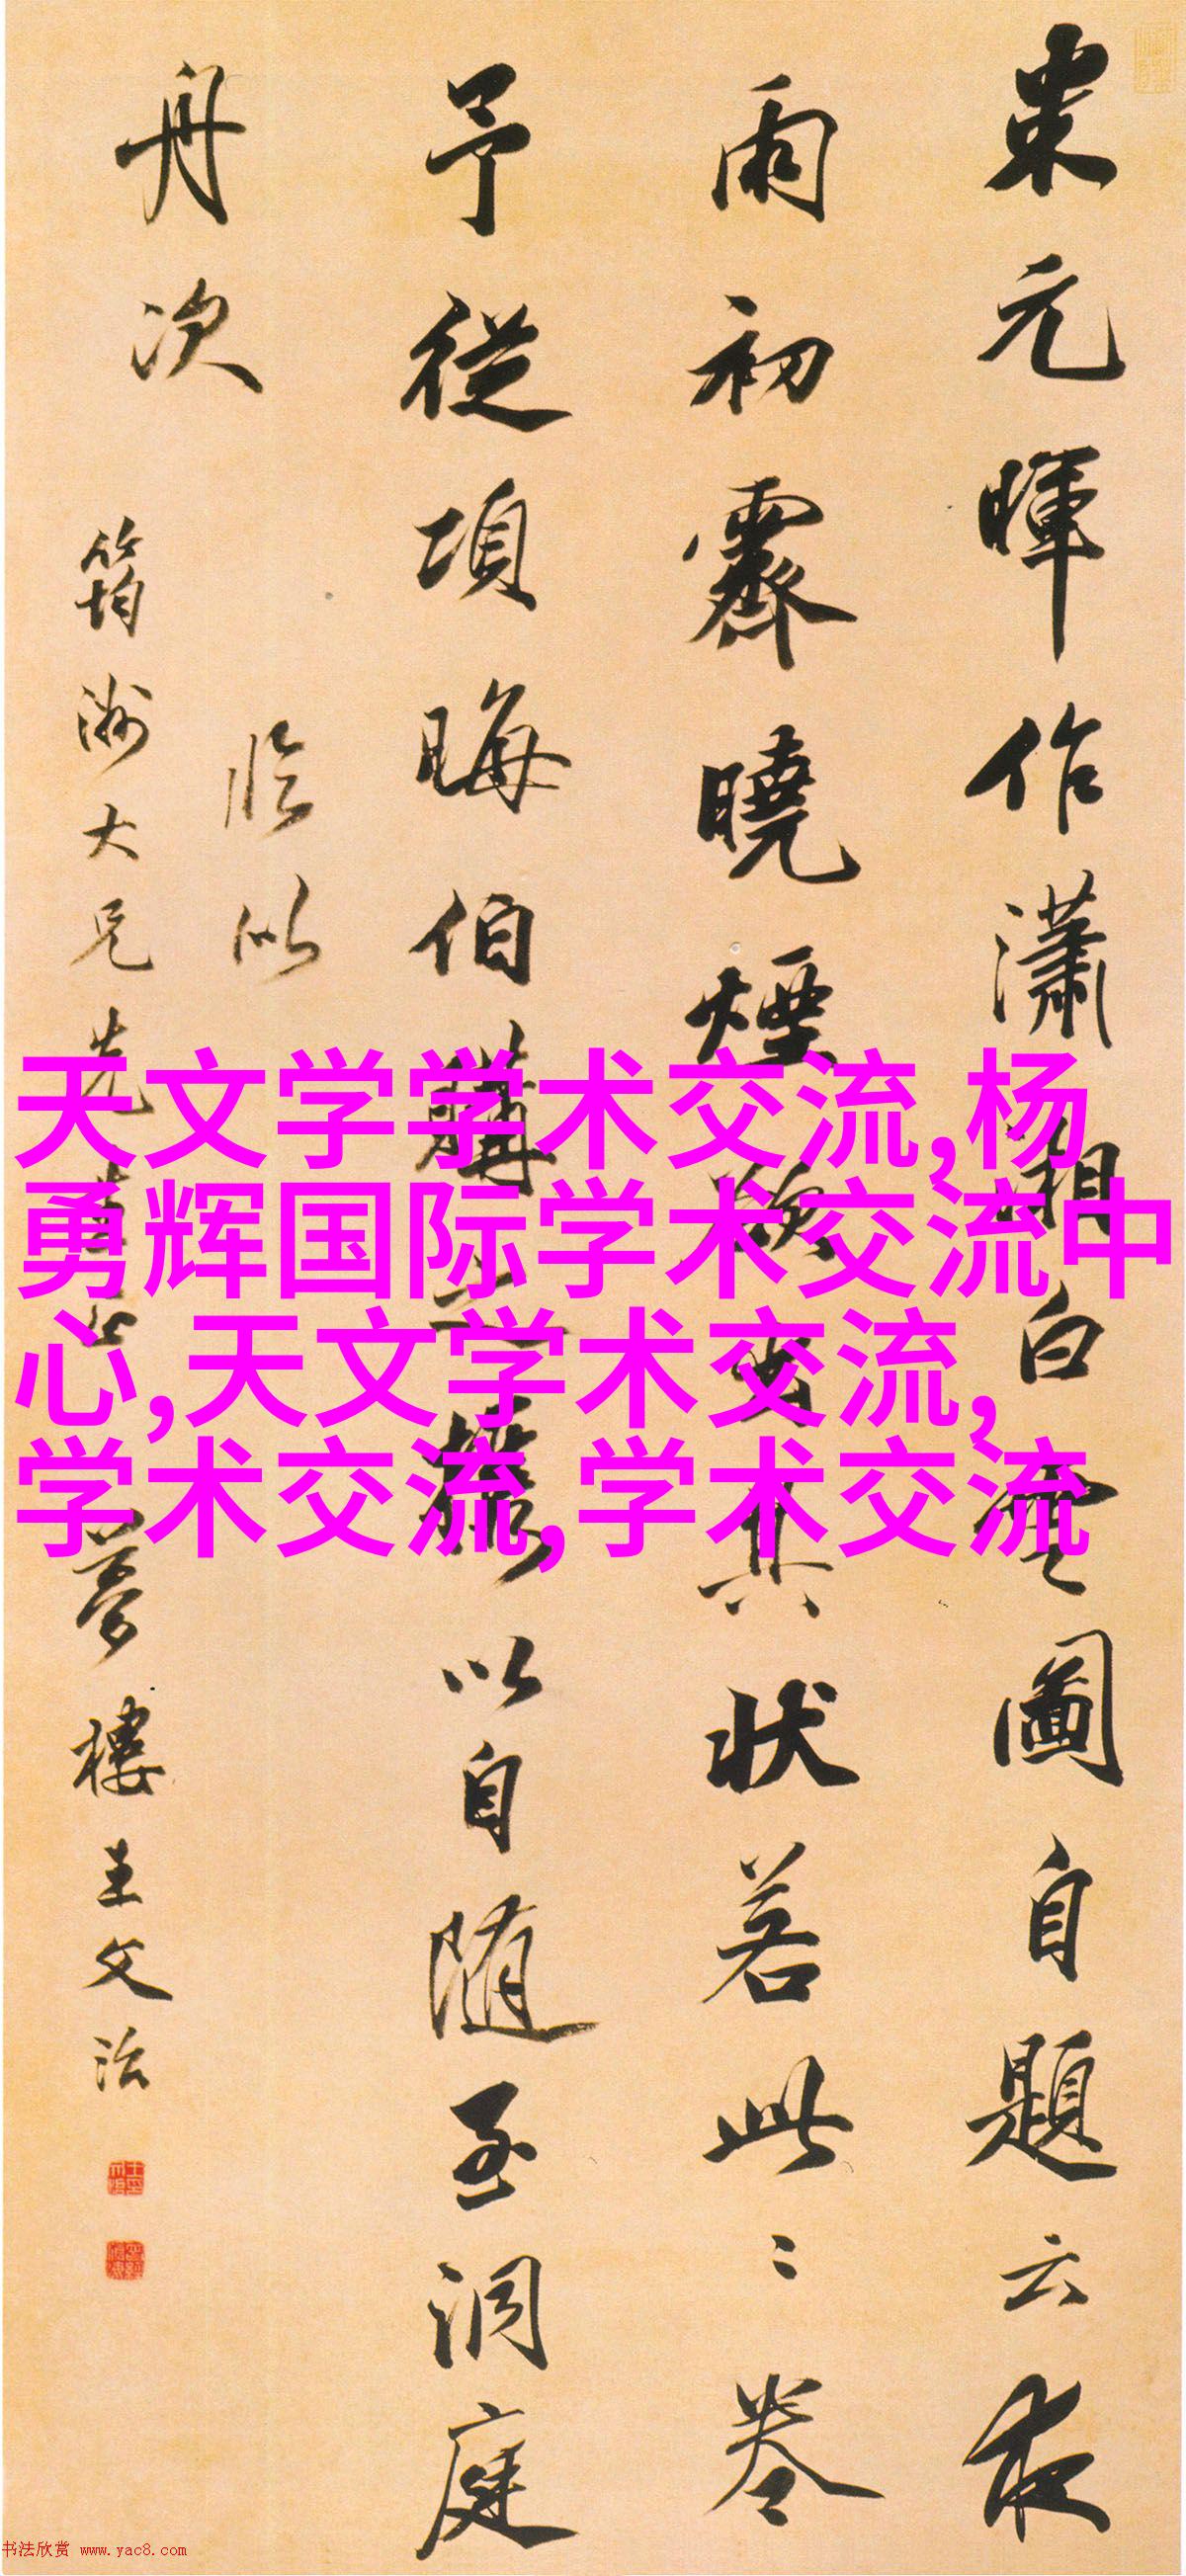 米元暉作瀟湘白雲圖自題云夜
雨初霽曉煙欲出其狀若此〻卷
予從項晦伯購之攜以自隨至洞庭
舟次
臨似
筠洲大兄先生 夢樓王文治
天文学学术交流,杨
勇辉国际学术交流中
心,天文学术交流,
学术交流,学术交流
书法欣赏 www.yac8.com